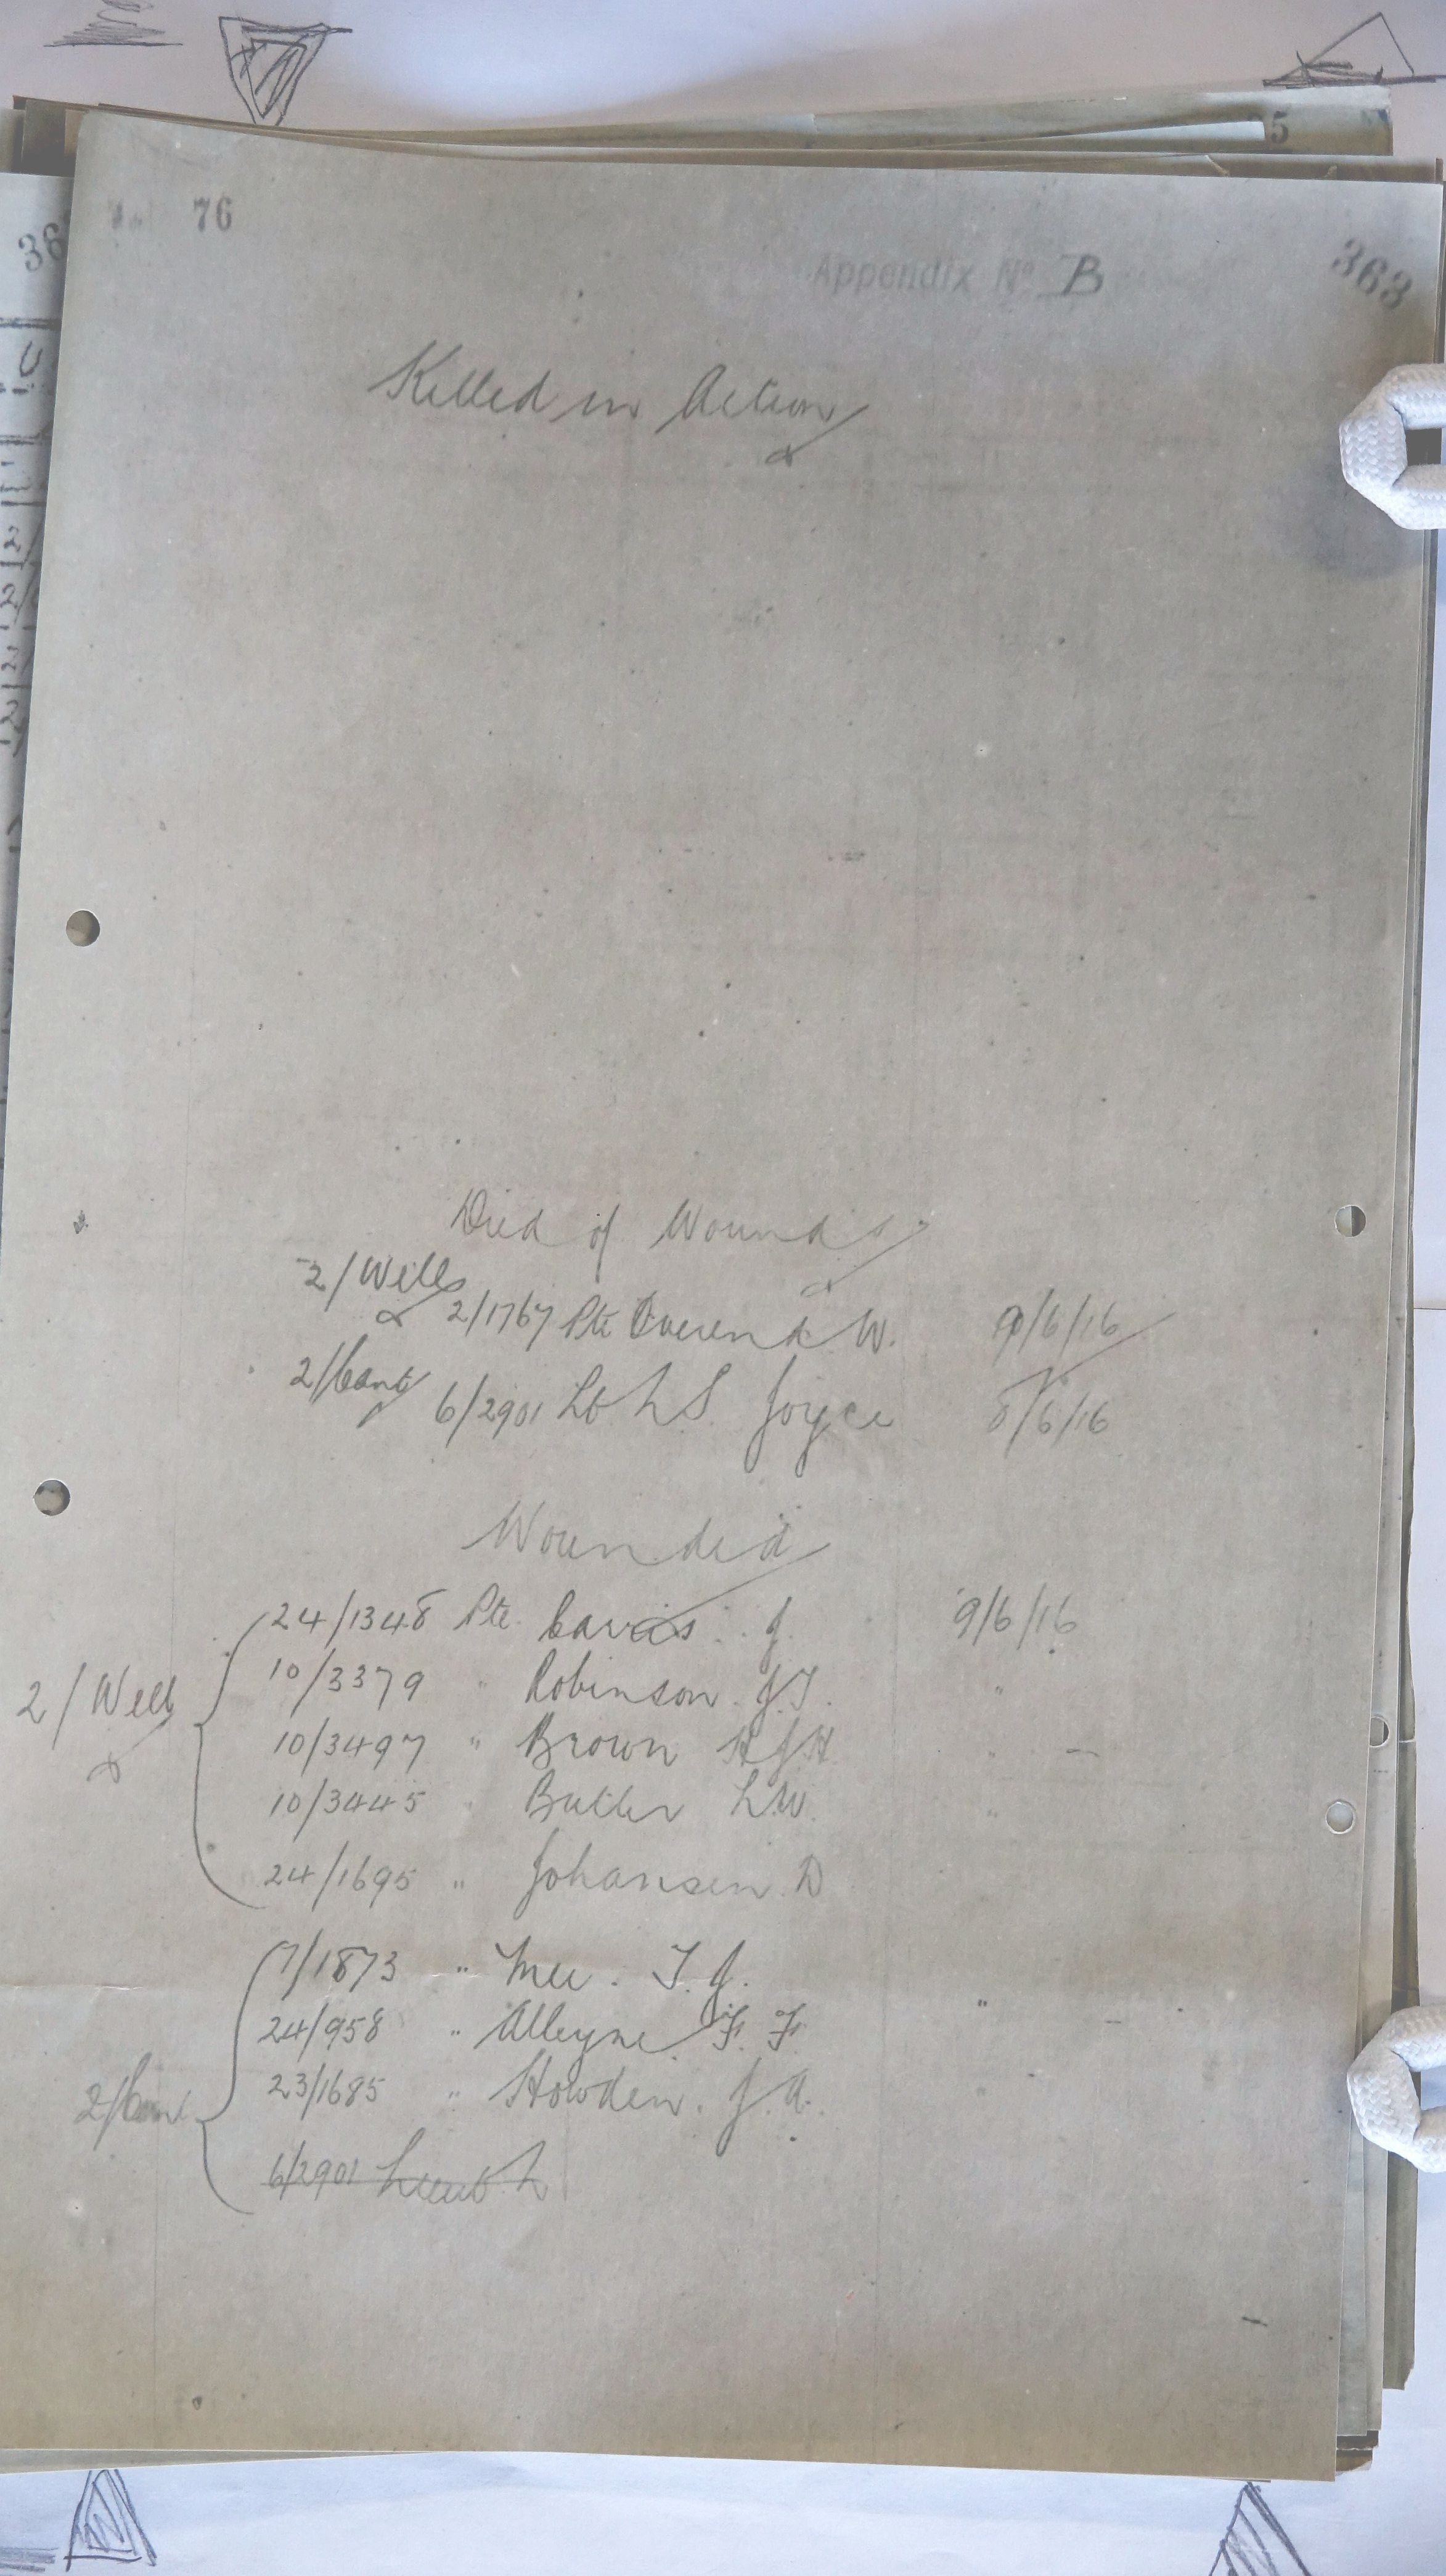 76
363
Appendix No B
Killed in Action
Died of Wounds
2/Well
2/1767 Pte Overend W. 9/6/16
2/Cant
6/2901 Lt. L S. Joyce 8/6/16
Wounded
24/1348 Pte. J. 9/6/16
2/Well
10/3379 " Robinson J.T. "
10/3497 " Brown H J H "
10/3445 " Butler L.W. "
24/1695 " Johansen D
7/1873 " Mee. T. J.
24/958 " Alleyne F. F. "
23/1685 " Howden. J. A. "
2/Cant
6/2901 Lieut L